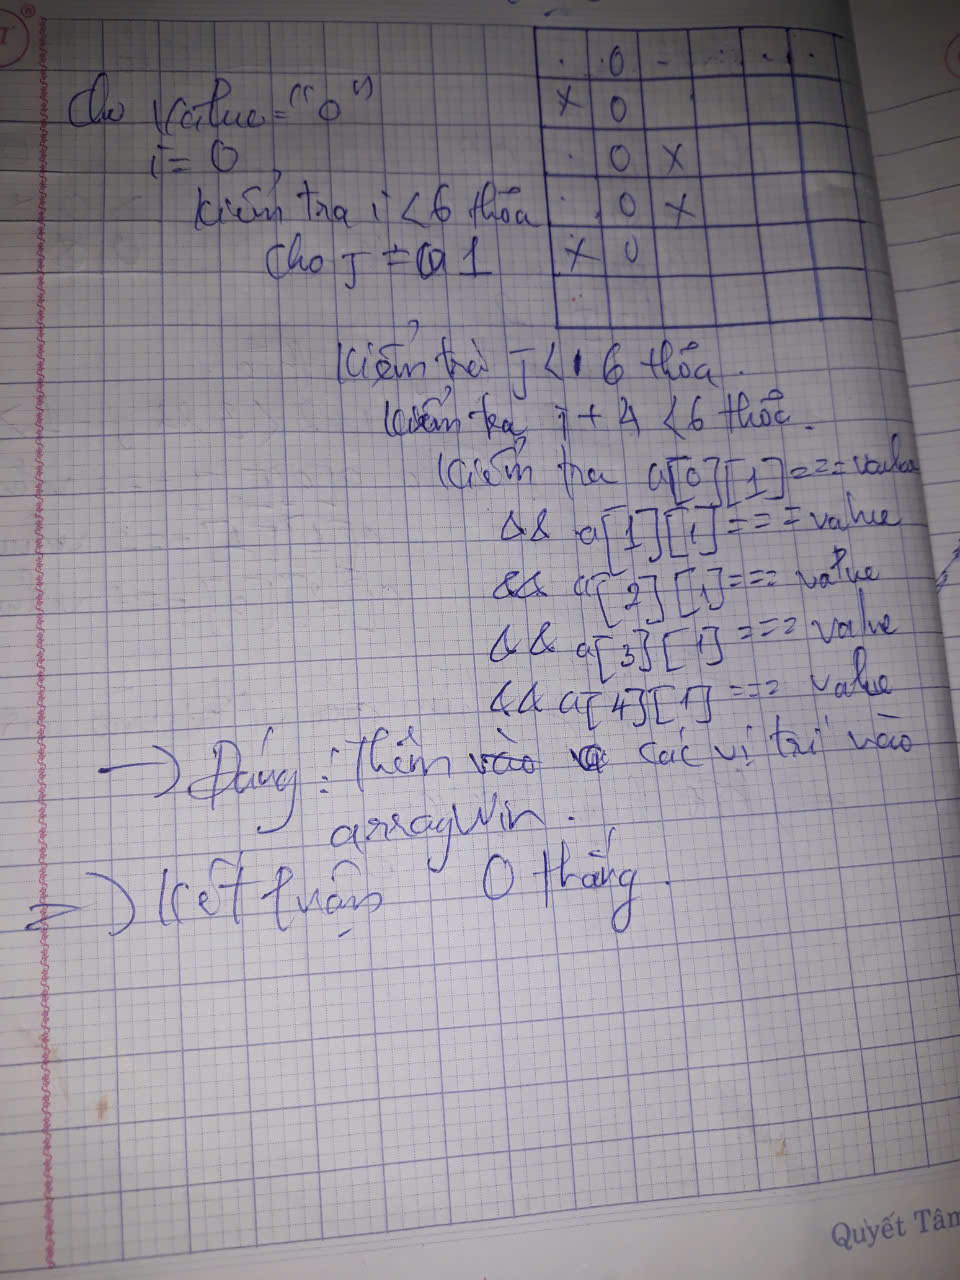 . . O - . . .
Cho value = "O"
X O
i = 0
. O X
kiểm tra i < 6 thỏa
. . O X
Cho j = 1
X O
Kiểm tra j < 6 thỏa.
Kiểm tra i + 4 < 6 thỏa.
Kiểm tra a[0][1] === value
&& a[1][1] === value
&& a[2][1] === value
&& a[3][1] === value
&& a[4][1] === value
-> Đúng : Thêm vào các vị trí vào
arrayWin.
=> Kết luận O thắng.
Quyết Tâm